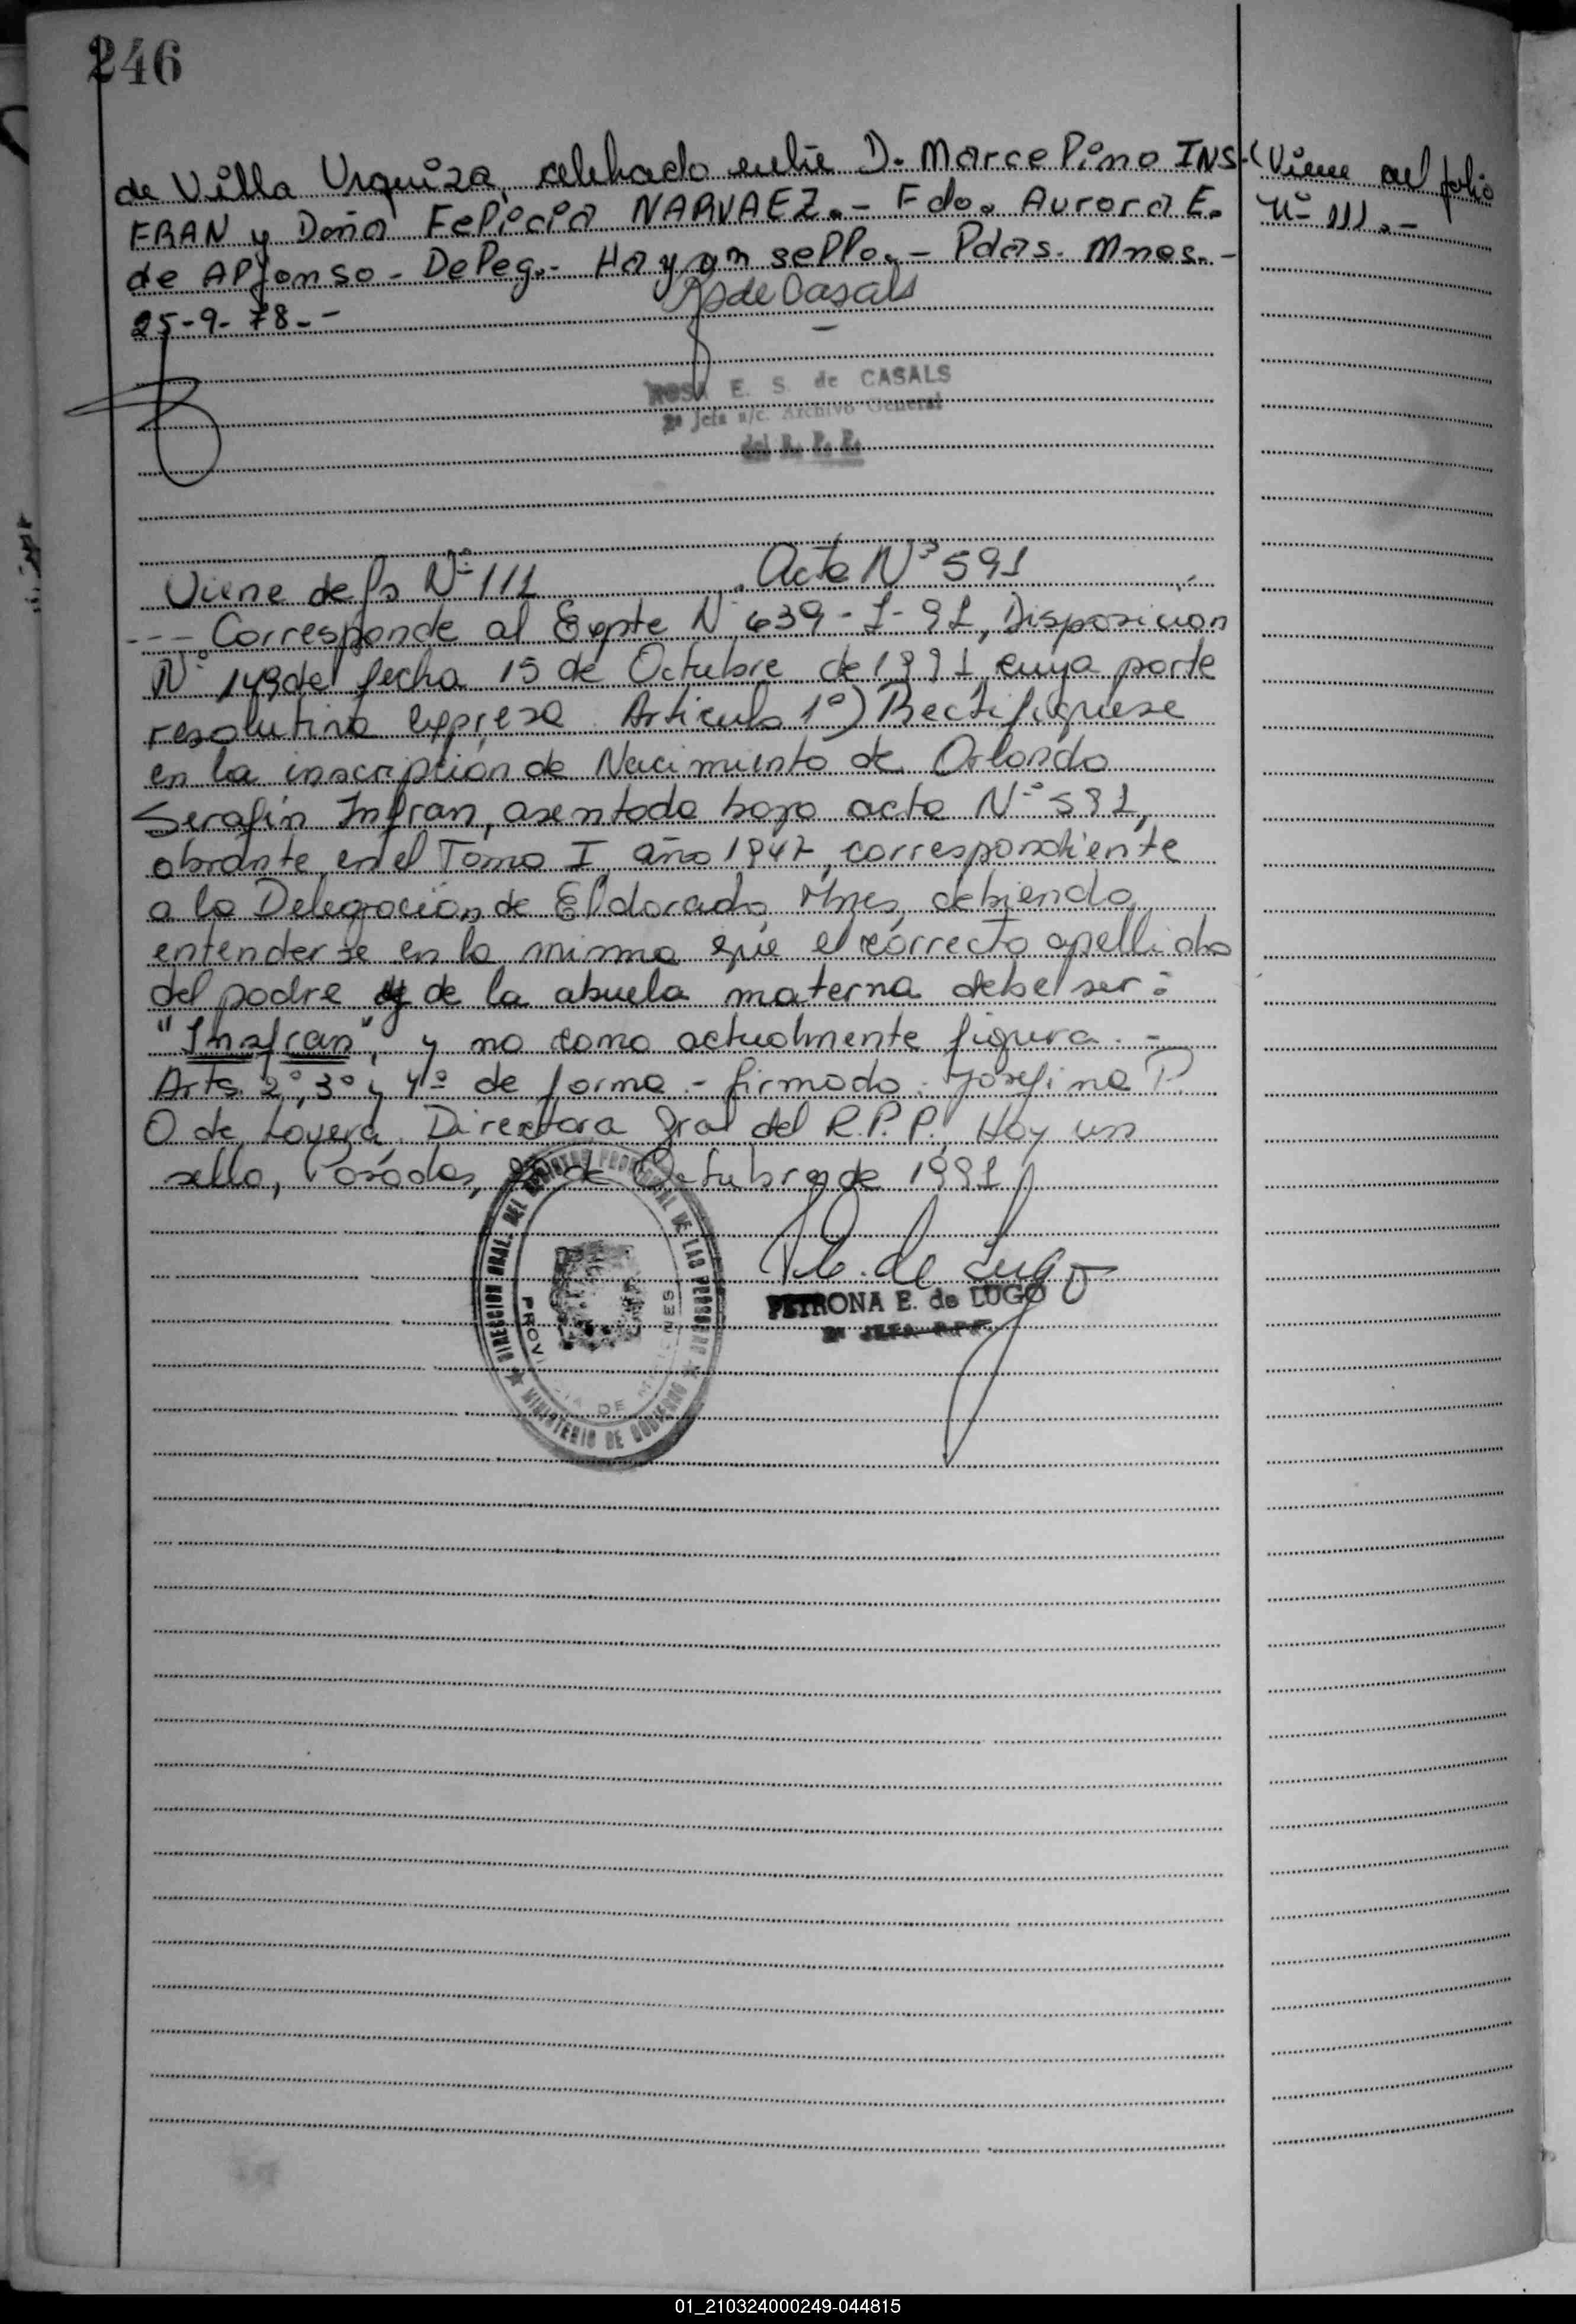 246
de Villa Urquiza, celebrado entre D. Marcelino INS-
FRAN y Doña Felicia NARVAEZ.- Fdo. Aurora E.
de Alfonso - Deleg.- Hay un sello.- Pdas. Mnes.-
25-9-78.-
(Viene del folio
Nº 111.-
R S de Casals
ROSA E. S. de CASALS
2ª Jefa a/c. Archivo General
del R. P. P.
Viene de fs Nº 111 Acta Nº 591
--- Corresponde al Expte Nº 639-I-91, Disposicion
Nº 149 del fecha 15 de Octubre de 1991 cuya parte
resolutiva expresa Articulo 1º) Rectifiquese
en la inscripcion de Nacimiento de Orlando
Serafin Infran, asentada bajo acta Nº 591,
obrante en el Tomo I año 1947, correspondiente
a la Delegacion de Eldorado, Mnes, debiendo
entenderse en la misma que el correcto apellido
del padre y de la abuela materna debe ser:
"Insfran", y no como actualmente figura.-
Arts. 2º, 3º y 4º de forma.- firmado. Josefina P.
O de Lovera, Directora Gral del R.P.P., Hay un
sello, Posadas, de Octubre de 1991
DIRECCION GRAL. DEL REGISTRO PROVINCIAL DE LAS PERSONAS
PROVINCIA DE MISIONES
MINISTERIO DE GOBIERNO
P. E. de Lugo
PETRONA E. de LUGO
2ª JEFA R.P.P.
01_210324000249-044815